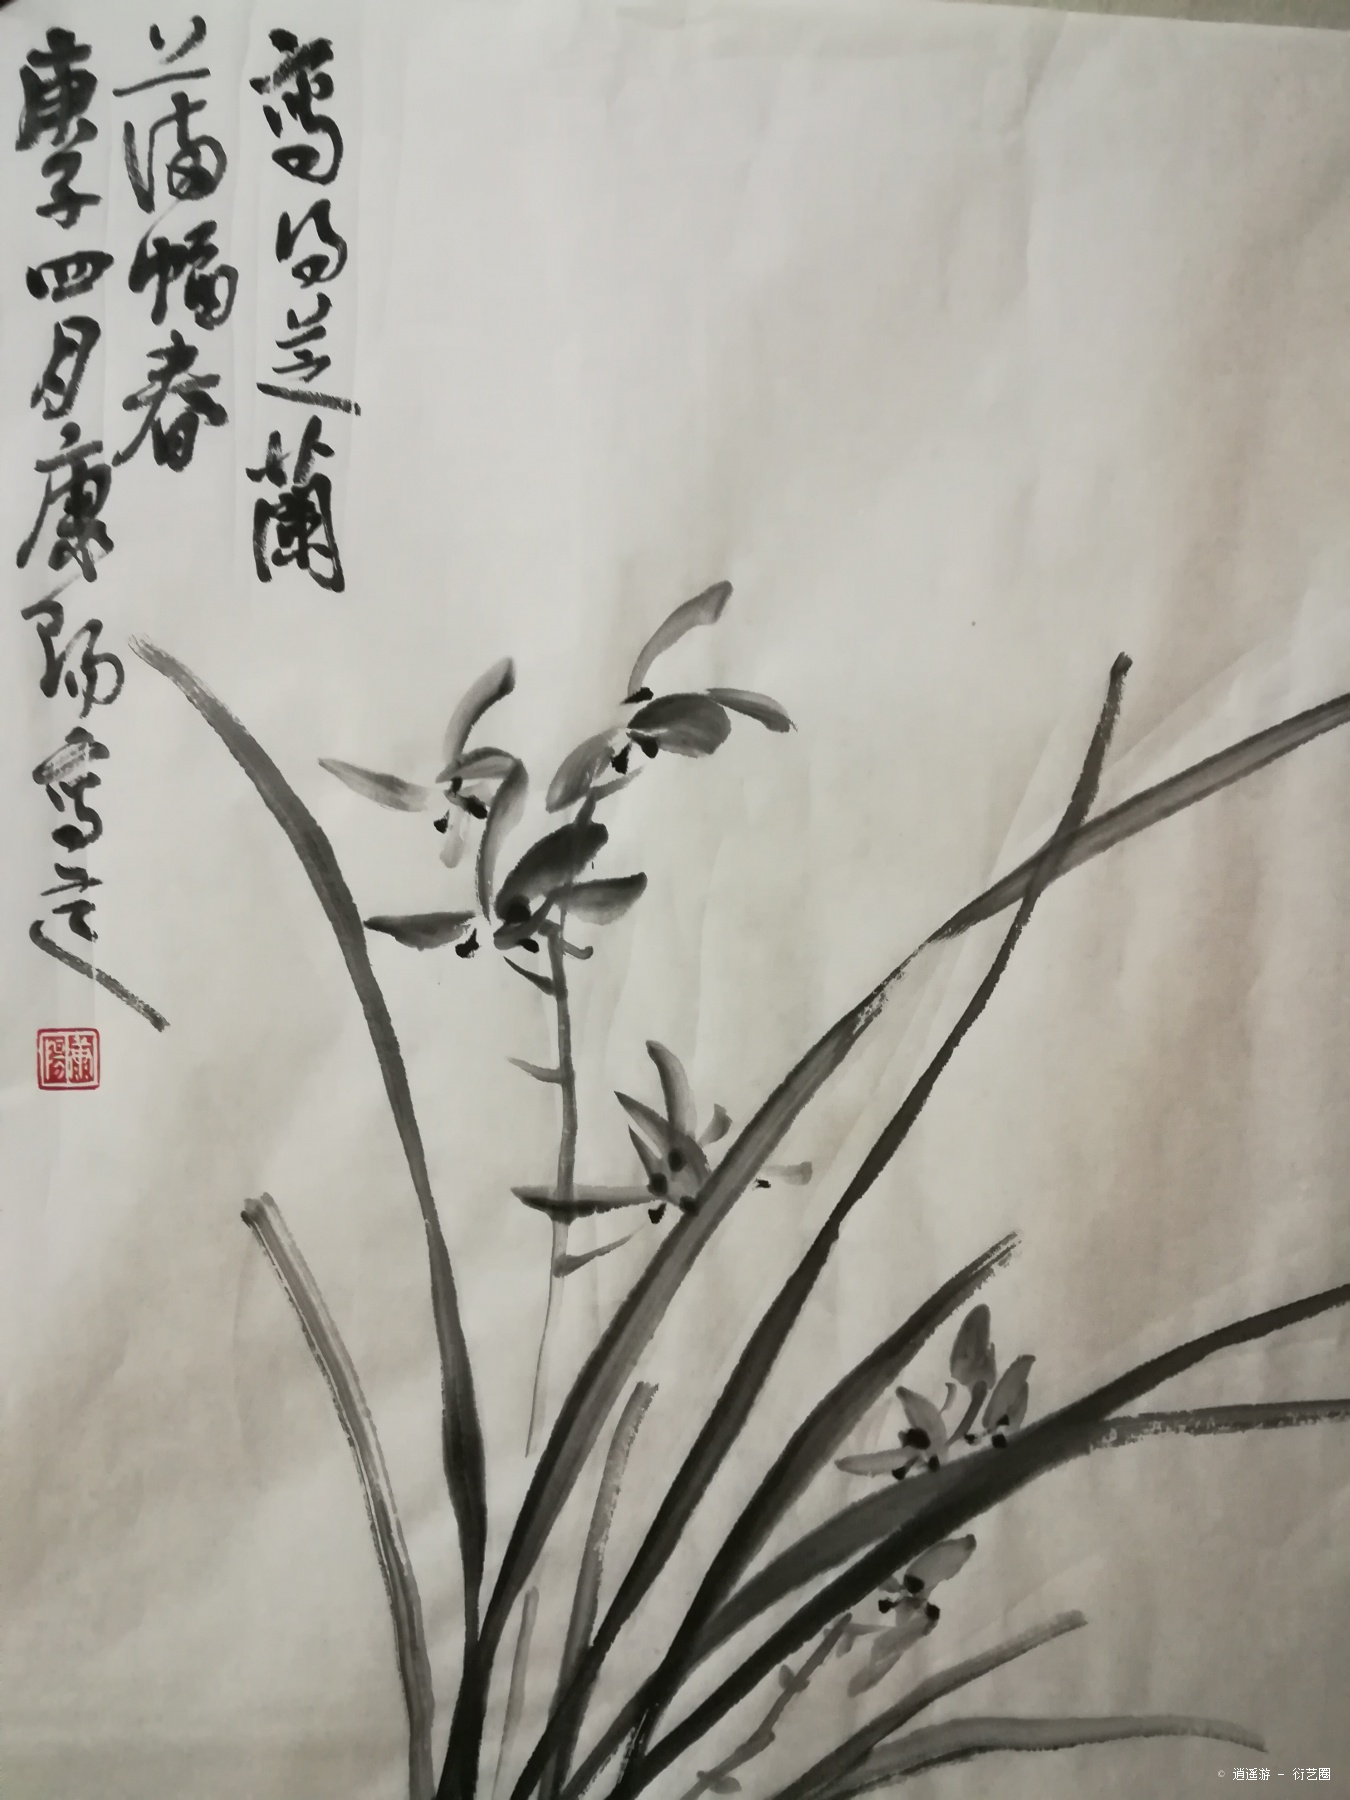 寫得芝蘭
滿幅春
庚子四月康陽寫之
康陽
© 逍遥游 - 衍艺圈